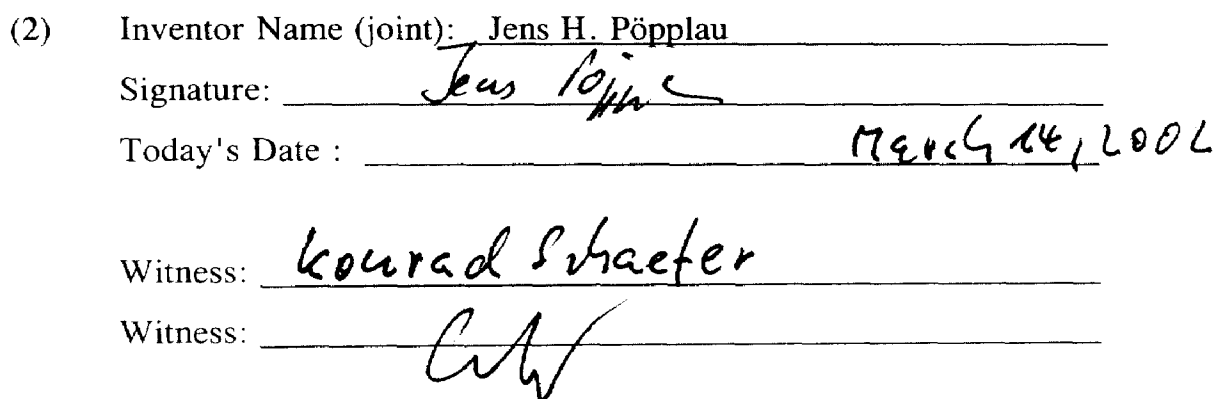 (2) Inventor Name (joint): Jens H. Pöpplau
Signature: Jens
Today's Date : March 14, 2002
Witness: Konrad Schaefer
Witness: